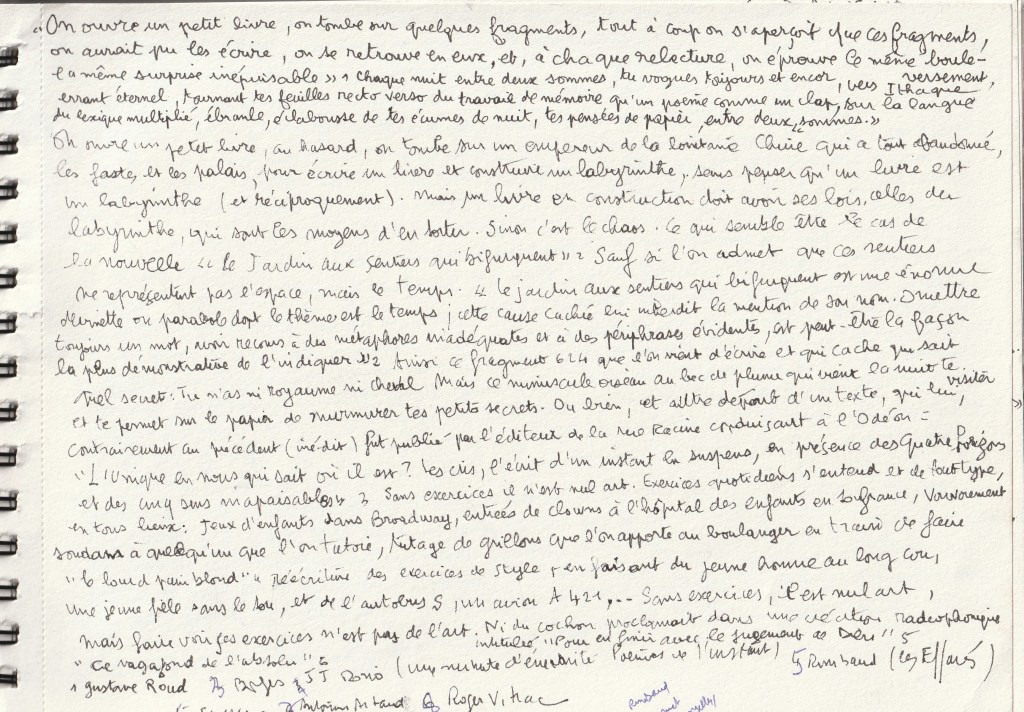 "On ouvre un petit livre, on tombe sur quelques fragments, tout à coup on s'aperçoit que ces fragments,
on aurait pu les écrire, on se retrouve en eux, et, à chaque relecture, on éprouve le même boule-
versement,
la même surprise inépuisable » 1 Chaque nuit entre deux sommes, tu vogues toujours et encor, vers Ithaque
errant éternel, tournant tes feuilles recto verso du travail de mémoire qu'un poème comme un clap, sur la langue
du lexique multiplié, ébranle, éclabousse de tes écumes de nuit, tes pensées de papier, entre deux "sommes."
On ouvre un petit livre, au hasard, on tombe sur un empereur de la lointaine Chine qui a tout abandonné,
les fastes et les palais, pour écrire un livre et construire un labyrinthe, sans penser qu'un livre est
un labyrinthe (et réciproquement). Mais un livre en construction doit avoir ses lois, celles du
labyrinthe, qui sont les moyens d'en sortir. Sinon c'est le chaos. Ce qui semble être le cas de
la nouvelle « Le Jardin aux sentiers qui bifurquent » 2 Sauf si l'on admet que ces sentiers
ne représentent pas l'espace, mais le temps. « Le jardin aux sentiers qui bifurquent est une énorme
devinette ou parabole dont le thème est le temps ; cette cause cachée lui interdit la mention de son nom. Omettre
toujours un mot, avoir recours à des métaphores inadéquates et à des périphrases évidentes, est peut-être la façon
la plus démonstrative de l'indiquer » 2 Ainsi ce fragment 624 que l'on vient d'écrire et qui cache qui sait
quel secret : Tu n'as ni royaume ni cheval Mais ce minuscule oiseau au bec de plume qui vient la nuit te
visiter
et te permet sur le papier de murmurer tes petits secrets. Ou bien, cet autre début d'un texte, qui lui,
contrairement au précédent (inédit) fut publié par l'éditeur de la rue Racine conduisant à l'Odéon =
"L'Unique en nous qui sait où il est ? Les cris, l'écrit d'un instant en suspens, en présence des quatre
et des cinq sens inapaisables » 3 Sans exercices il n'est nul art. Exercices quotidiens s'entend et de tout type,
en tous lieux : Jeux d'enfants dans Broadway, entrées de clowns à l'hôpital des enfants en souffrance, Vouvoiement
soudain à quelqu'un que l'on tutoie, de grillons que l'on apporte au boulanger en train de faire
"le lourd pain blond" 4 Réécriture des exercices de style, en faisant du jeune homme au long cou,
une jeune fille sans le sou, et de l'autobus S, un avion A 421,... Sans exercices, il est nul art,
mais faire voir ses exercices n'est pas de l'art. Ni du cochon proclamait dans une création radiophonique
intitulée "Pour en finir avec le jugement de Dieu" 5
"Ce vagabond de l'absolu" 6
1 Gustave Roud 2 Borges 3 JJ Dorio (une minute d'éternité Poèmes de l'instant) 4 Rimbaud (les Effarés)
Antonin Artaud 6 Roger Vitrac
Rimbaud